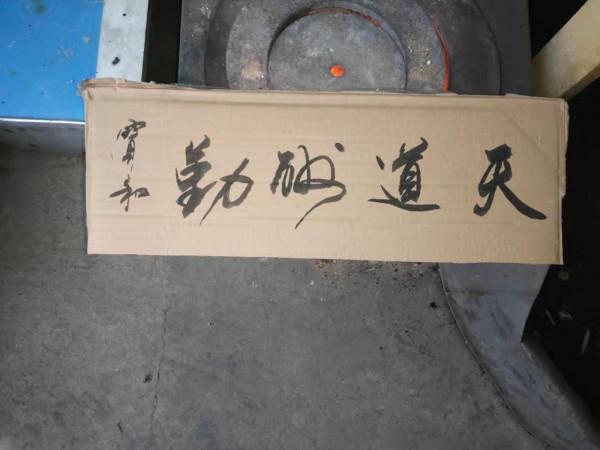 天道酬勤
寳和